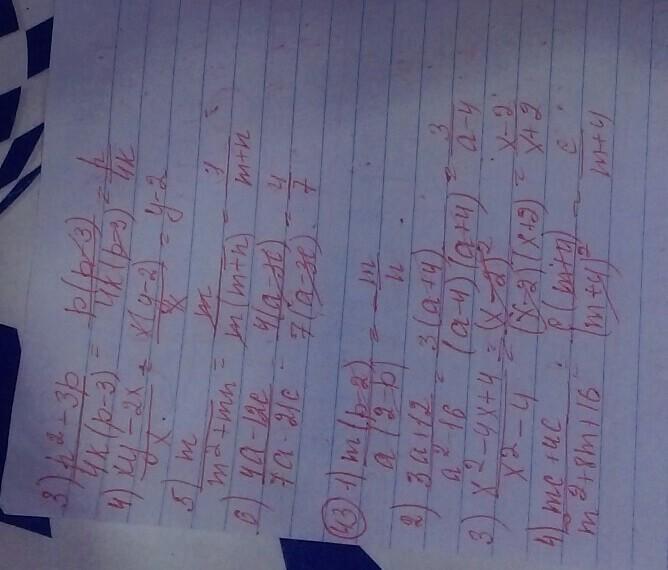 3) p² - 3p / 4k(p-3) = p(p-3) / 4k(p-3) = p / 4k
4) xy - 2x / x = x(y-2) / x = y-2
5) m / m² + mn = m / m(m+n) = 1 / m+n
6) 4a-12c / 7a-21c = 4(a-3c) / 7(a-3c) = 4 / 7
43 1) m(p-2) / (2-p) = - m / n
2) 3a+12 / a²-16 = 3(a+4) / (a-4)(a+4) = 3 / a-4
3) x²-4x+4 / x²-4 = (x-2)² / (x-2)(x+2) = x-2 / x+2
4) mc+4c / m²+8m+16 = c(m+4) / (m+4)² = c / m+4